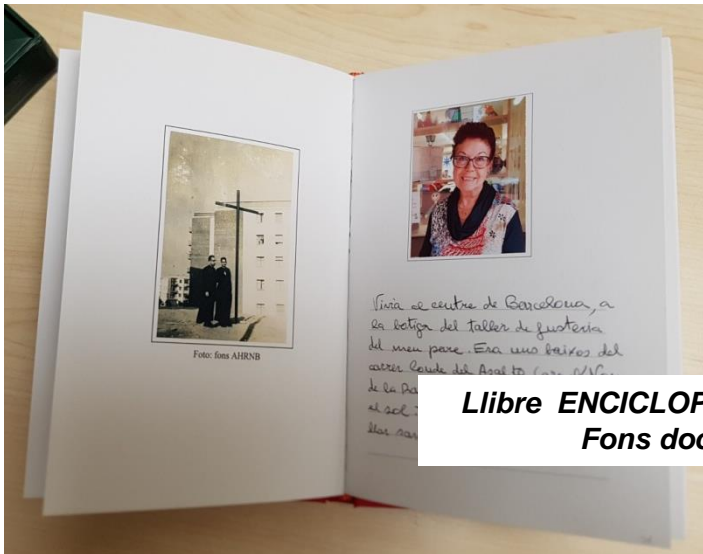 Foto: fons AHRNB
Vivia al centre de Barcelona, a
la botiga del taller de fusteria
del meu pare. Era uns baixos del
carrer Conde del Asalto
de la Ra
el sol
Llibre ENCICLOP
Fons doc